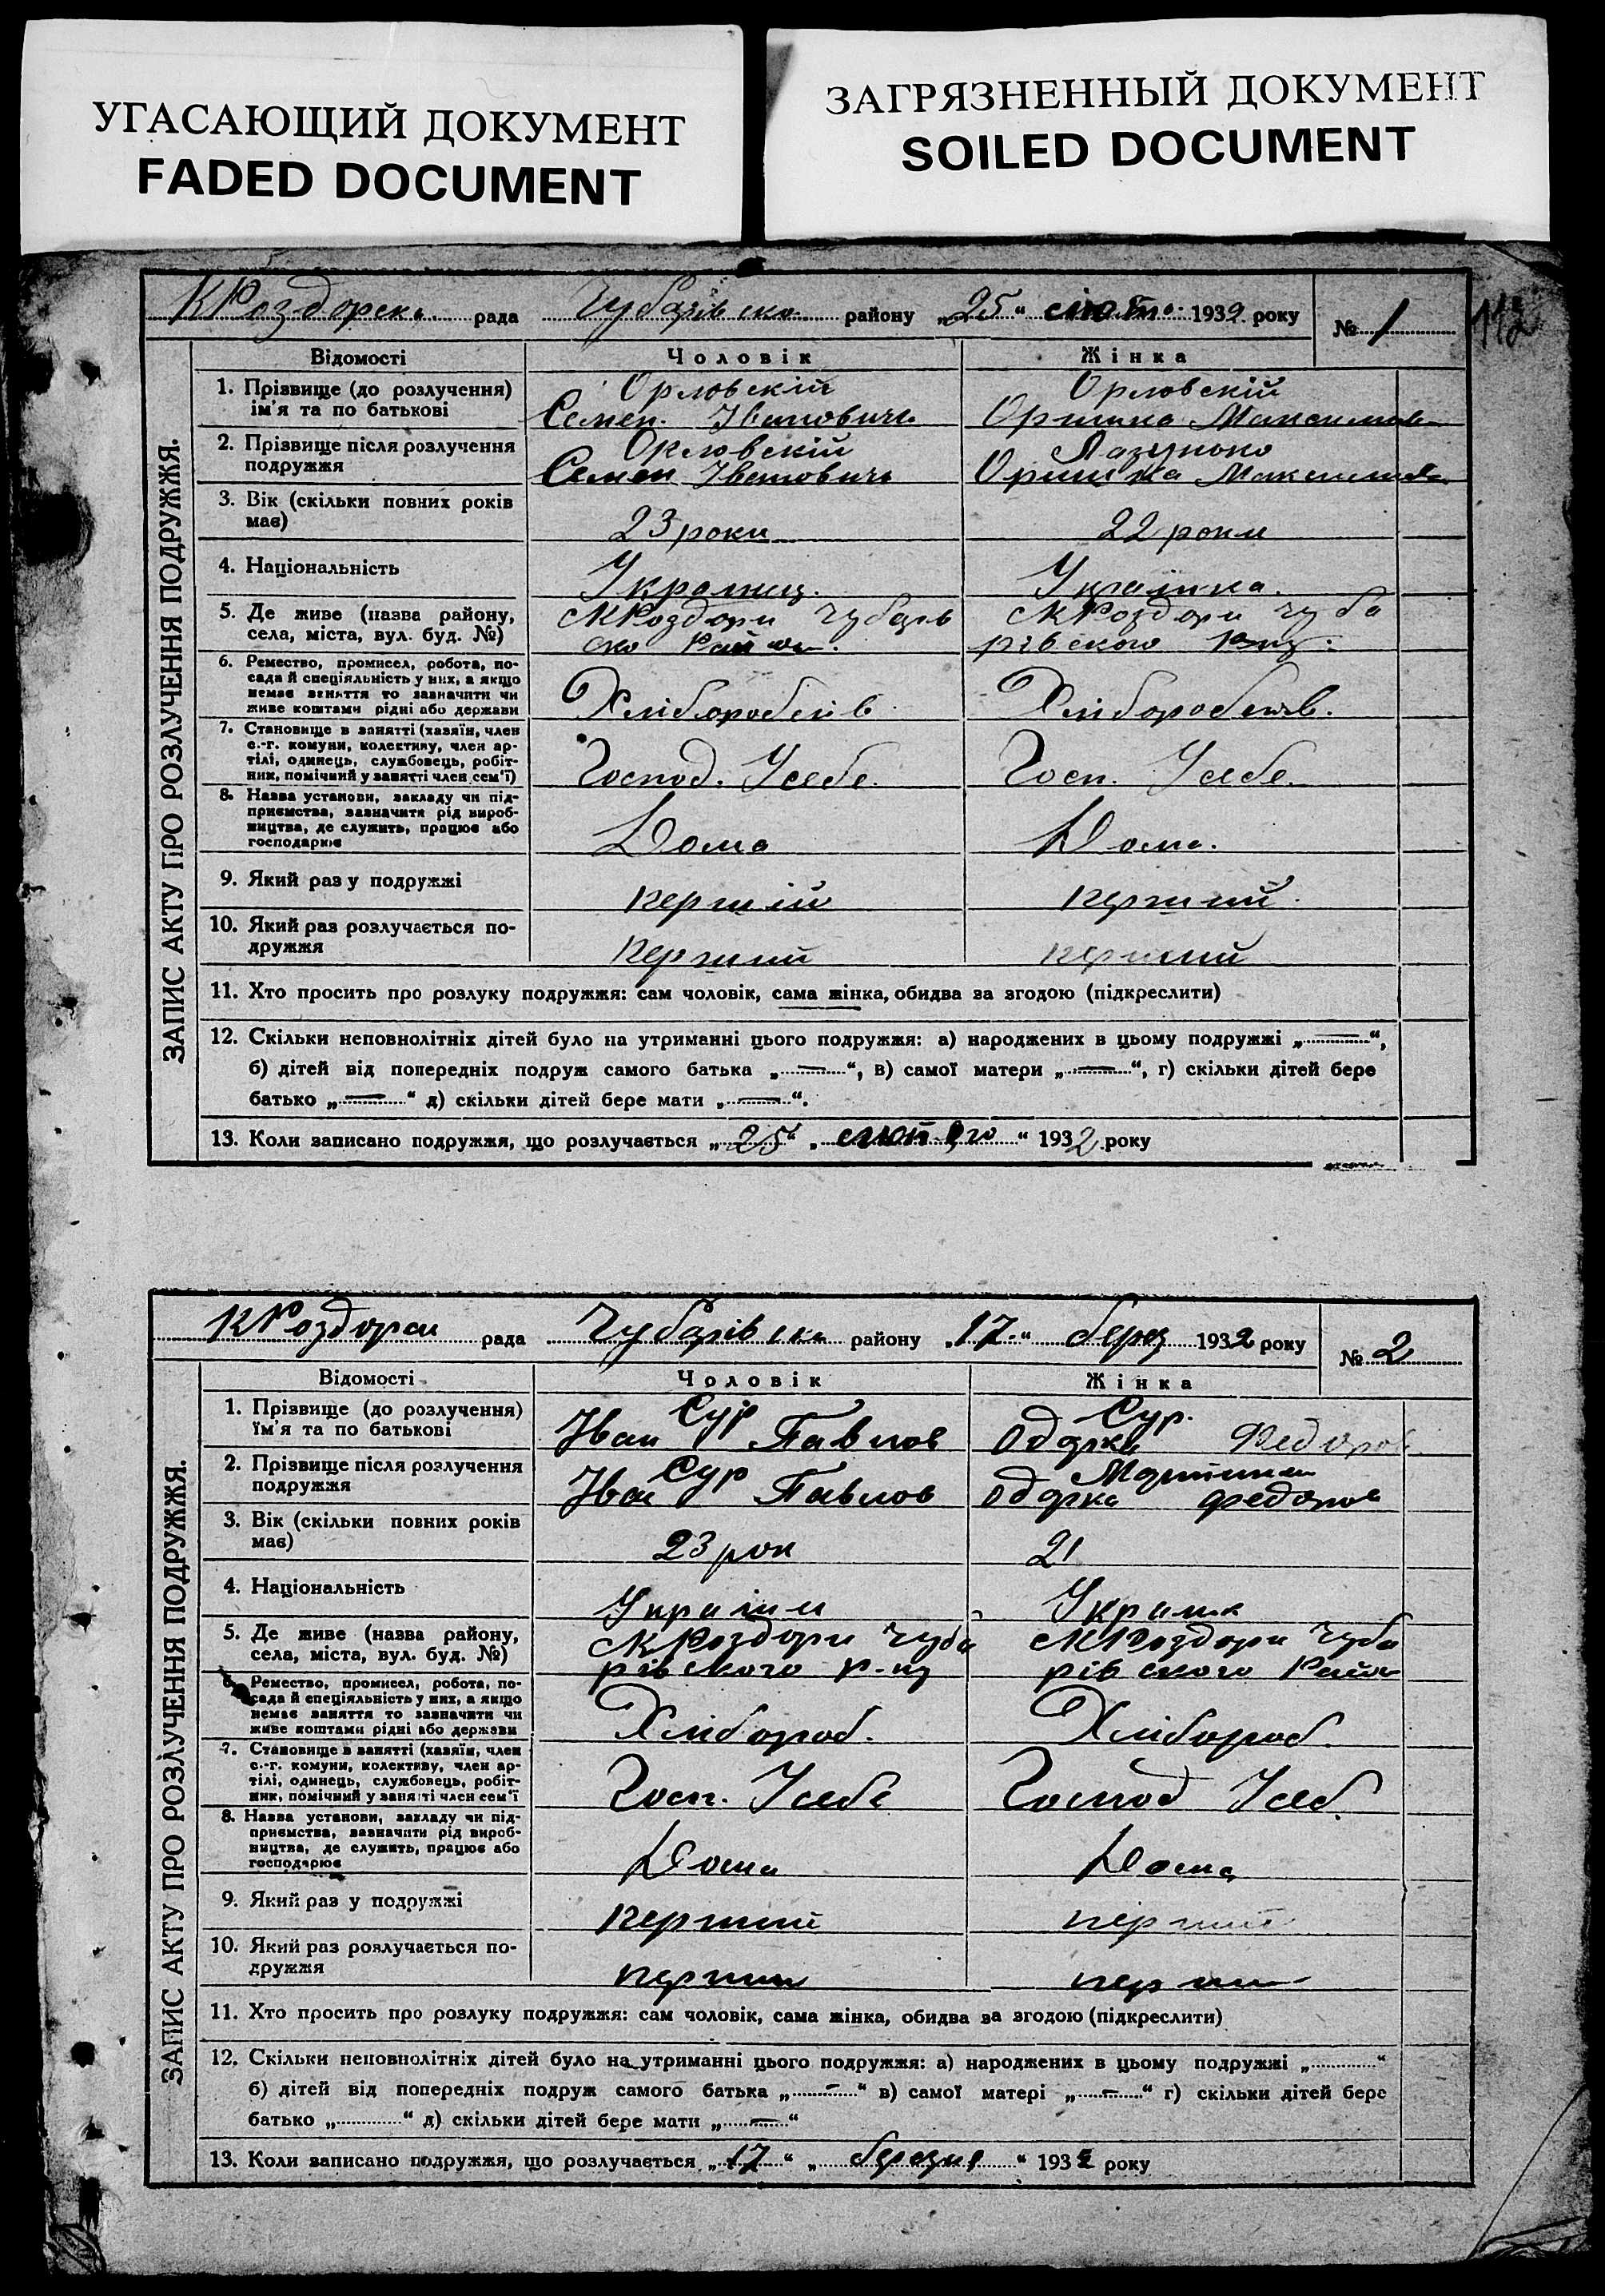 УГАСАЮЩИЙ ДОКУМЕНТ
FADED DOCUMENT
ЗАГРЯЗНЕННЫЙ ДОКУМЕНТ
SOILED DOCUMENT
КРоздорска рада Чубарівско району „25“ 1932 року
№ 1
ЗАПИС АКТУ ПРО РОЗЛУЧЕННЯ ПОДРУЖЖЯ.
Відомості Чоловік Жінка
1. Прізвище (до розлучення) Орловскій Орловскій
ім'я та по батькові Семен Івановичь Оришка Максимов
2. Прізвище після розлучення Орловскій
подружжя Семен Івановичь Оришка Максимов
3. Вік (скільки повних років
має) 23 роки 22 роки
4. Національність Українец. Українка.
5. Де живе (назва району, сКРоздори Чубарів сКРоздори Чуба
села, міста, вул. буд. №) ско Район. рівского
6. Ремество, промисел, робота, по-
сада й спеціяльність у них, а якщо
немає заняття то зазначити чи
живе коштами рідні або держави Хліборобств Хліборобств.
7. Становище в занятті (хазяїн, член
с.-г. комуни, колективу, член ар-
тілі, одинець, службовець, робіт-
ник, помічний у занятті член сем'ї) Господ. Усебе. Госп. Усебе.
8. Назва установи, закладу чи під-
приємства, зазначити рід вироб-
ництва, де служить, працює або
господарює Дома Дома.
9. Який раз у подружжі першій перший.
10. Який раз розлучається по-
дружжя перший перший
11. Хто просить про розлуку подружжя: сам чоловік, сама жінка, обидва за згодою (підкреслити)
12. Скільки неповнолітніх дітей було на утриманні цього подружжя: а) народжених в цьому подружжі „—“,
б) дітей від попередніх подруж самого батька „—“, в) самої матери „—“, г) скільки дітей бере
батько „—“ д) скільки дітей бере мати „—“.
13. Коли записано подружжя, що розлучається „25“ „лютого“ 1932 року
КРоздори рада Чубарівско району „17“ берез 1932 року
№ 2
ЗАПИС АКТУ ПРО РОЗЛУЧЕННЯ ПОДРУЖЖЯ.
Відомості Чоловік Жінка
1. Прізвище (до розлучення) Сур Сур.
їм'я та по батькові Іван Павлов Одарка Федоров
2. Прізвище після розлучення Сур
подружжя Іван Павлов Одарка Федоров
3. Вік (скільки повних років
має) 23 рок 21
4. Національність
5. Де живе (назва району, сКРоздори Чуба сКРоздори Чуба
села, міста, вул. буд. №) рівского р-ну рівского Район
6. Ремество, промисел, робота, по-
сада й спеціяльність у них, а якщо
немає заняття то зазначити чи
живе коштами рідні або держави Хлібороб. Хлібороб.
7. Становище в занятті (хазяїн, член
с.-г. комуни, колективу, член ар-
тілі, одинець, службовець, робіт-
ник, помічний у занятті член сем'ї Госп. Усебе Господ Усеб.
8. Назва установи, закладу чи під-
приємства, зазначити рід вироб-
ництва, де служить, працює або
господарює Дома Дома
9. Який раз у подружжі перший перший
10. Який раз розлучається по-
дружжя перши перши
11. Хто просить про розлуку подружжя: сам чоловік, сама жінка, обидва за згодою (підкреслити)
12. Скільки неповнолітніх дітей було на утриманні цього подружжя: а) народжених в цьому подружжі „“
б) дітей від попередніх подруж самого батька „—“ в) самої матері „—“ г) скільки дітей бере
батько „“ д) скільки дітей бере мати „—“
13. Коли записано подружжя, що розлучається „17“ „березня“ 1932 року